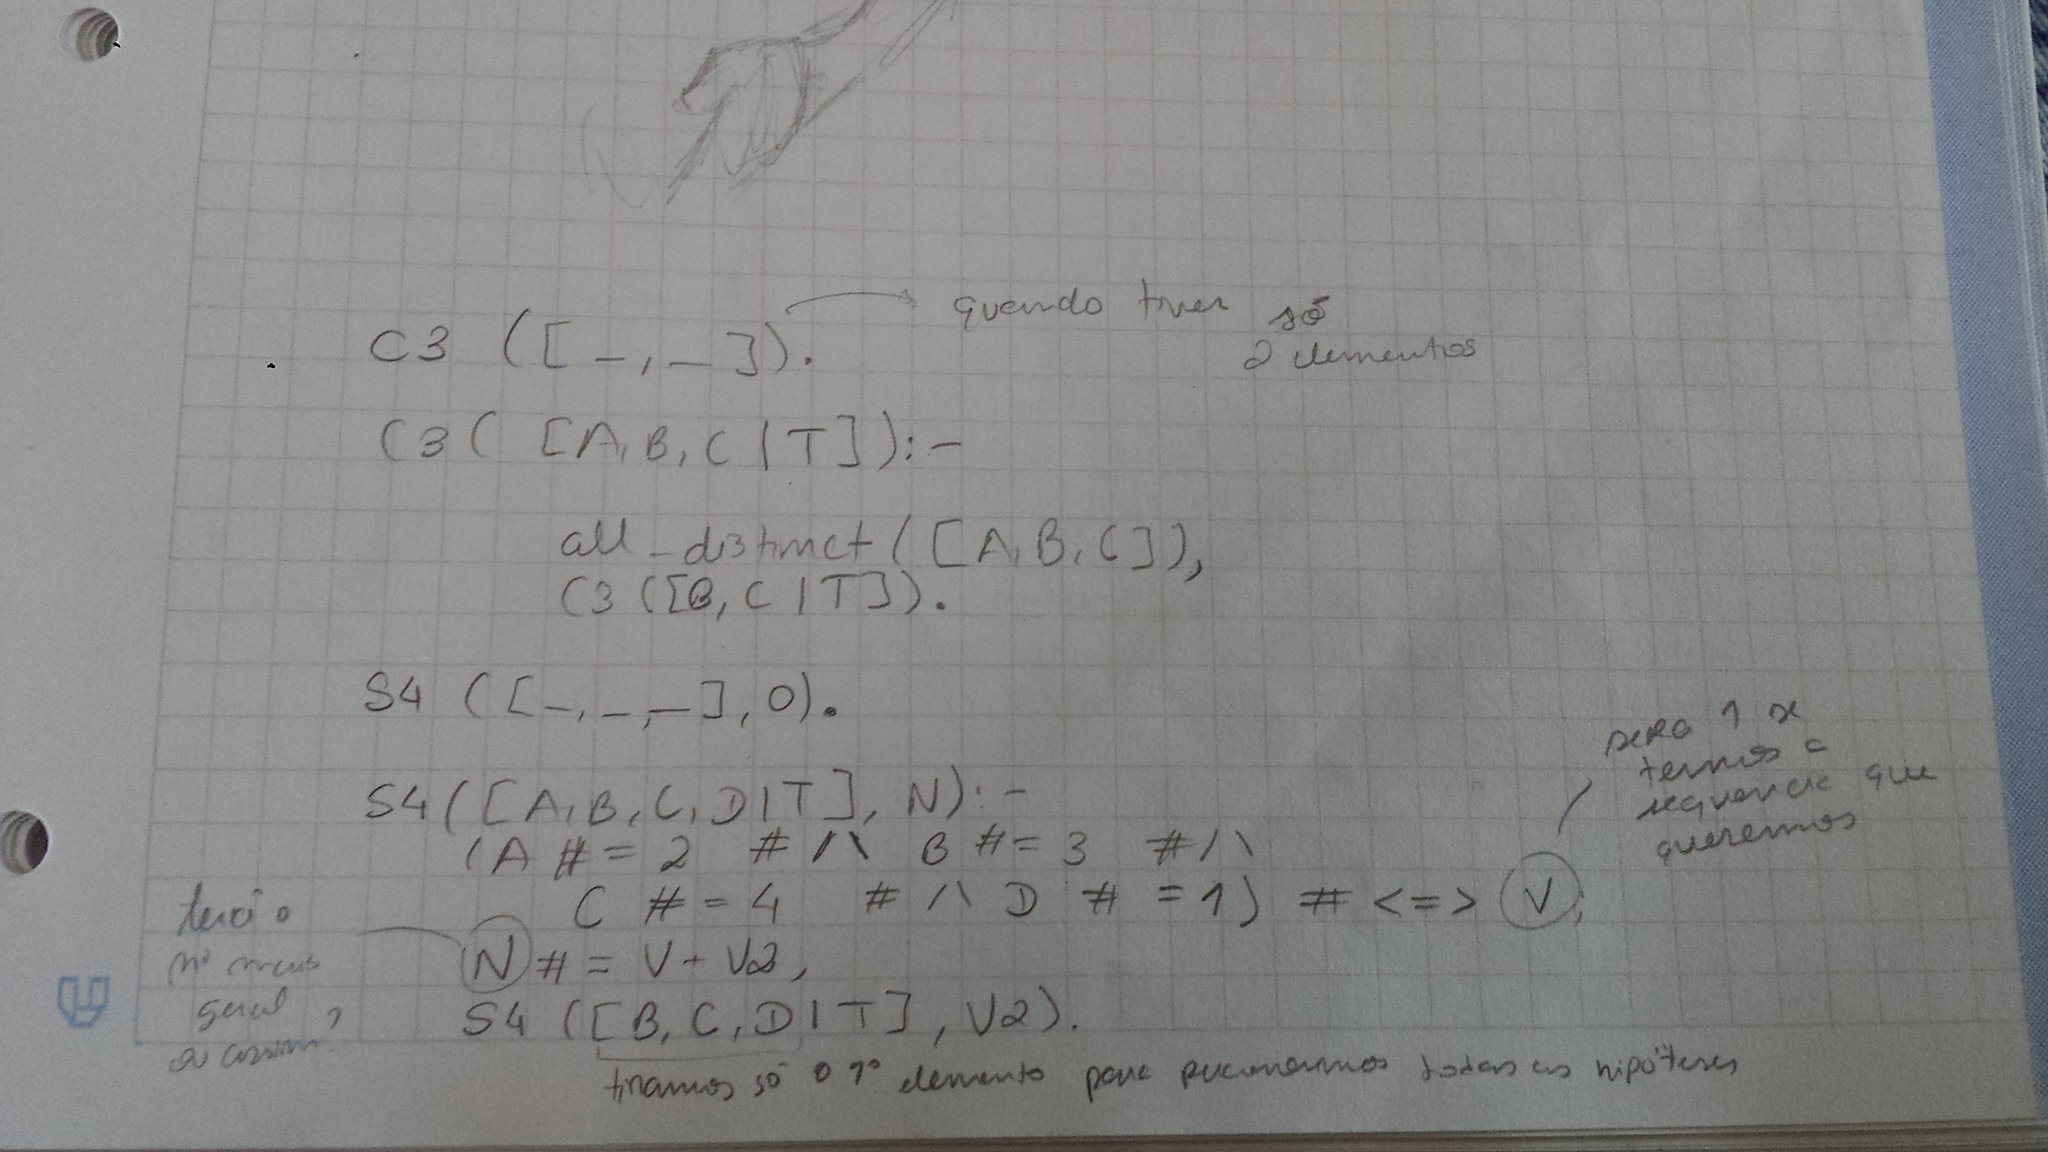 C3 ([_,_]). quando tiver só
2 elementos
C3 ( [A,B,C|T]):-
all_distinct([A,B,C]),
C3([B,C|T]).
S4 ([_,_,_],0).
S4([A,B,C,D|T], N):-
(A #= 2 #/\ B #= 3 #/\
C #= 4 #/\ D #=1) #<=> V,
N #= V + V2,
S4 ([B,C,D|T], V2).
será 1 se
temos a
sequencia que
queremos
terá o
nº mais
geral
ou assim?
tiramos só o 1º elemento para percorrermos todas as hipóteses